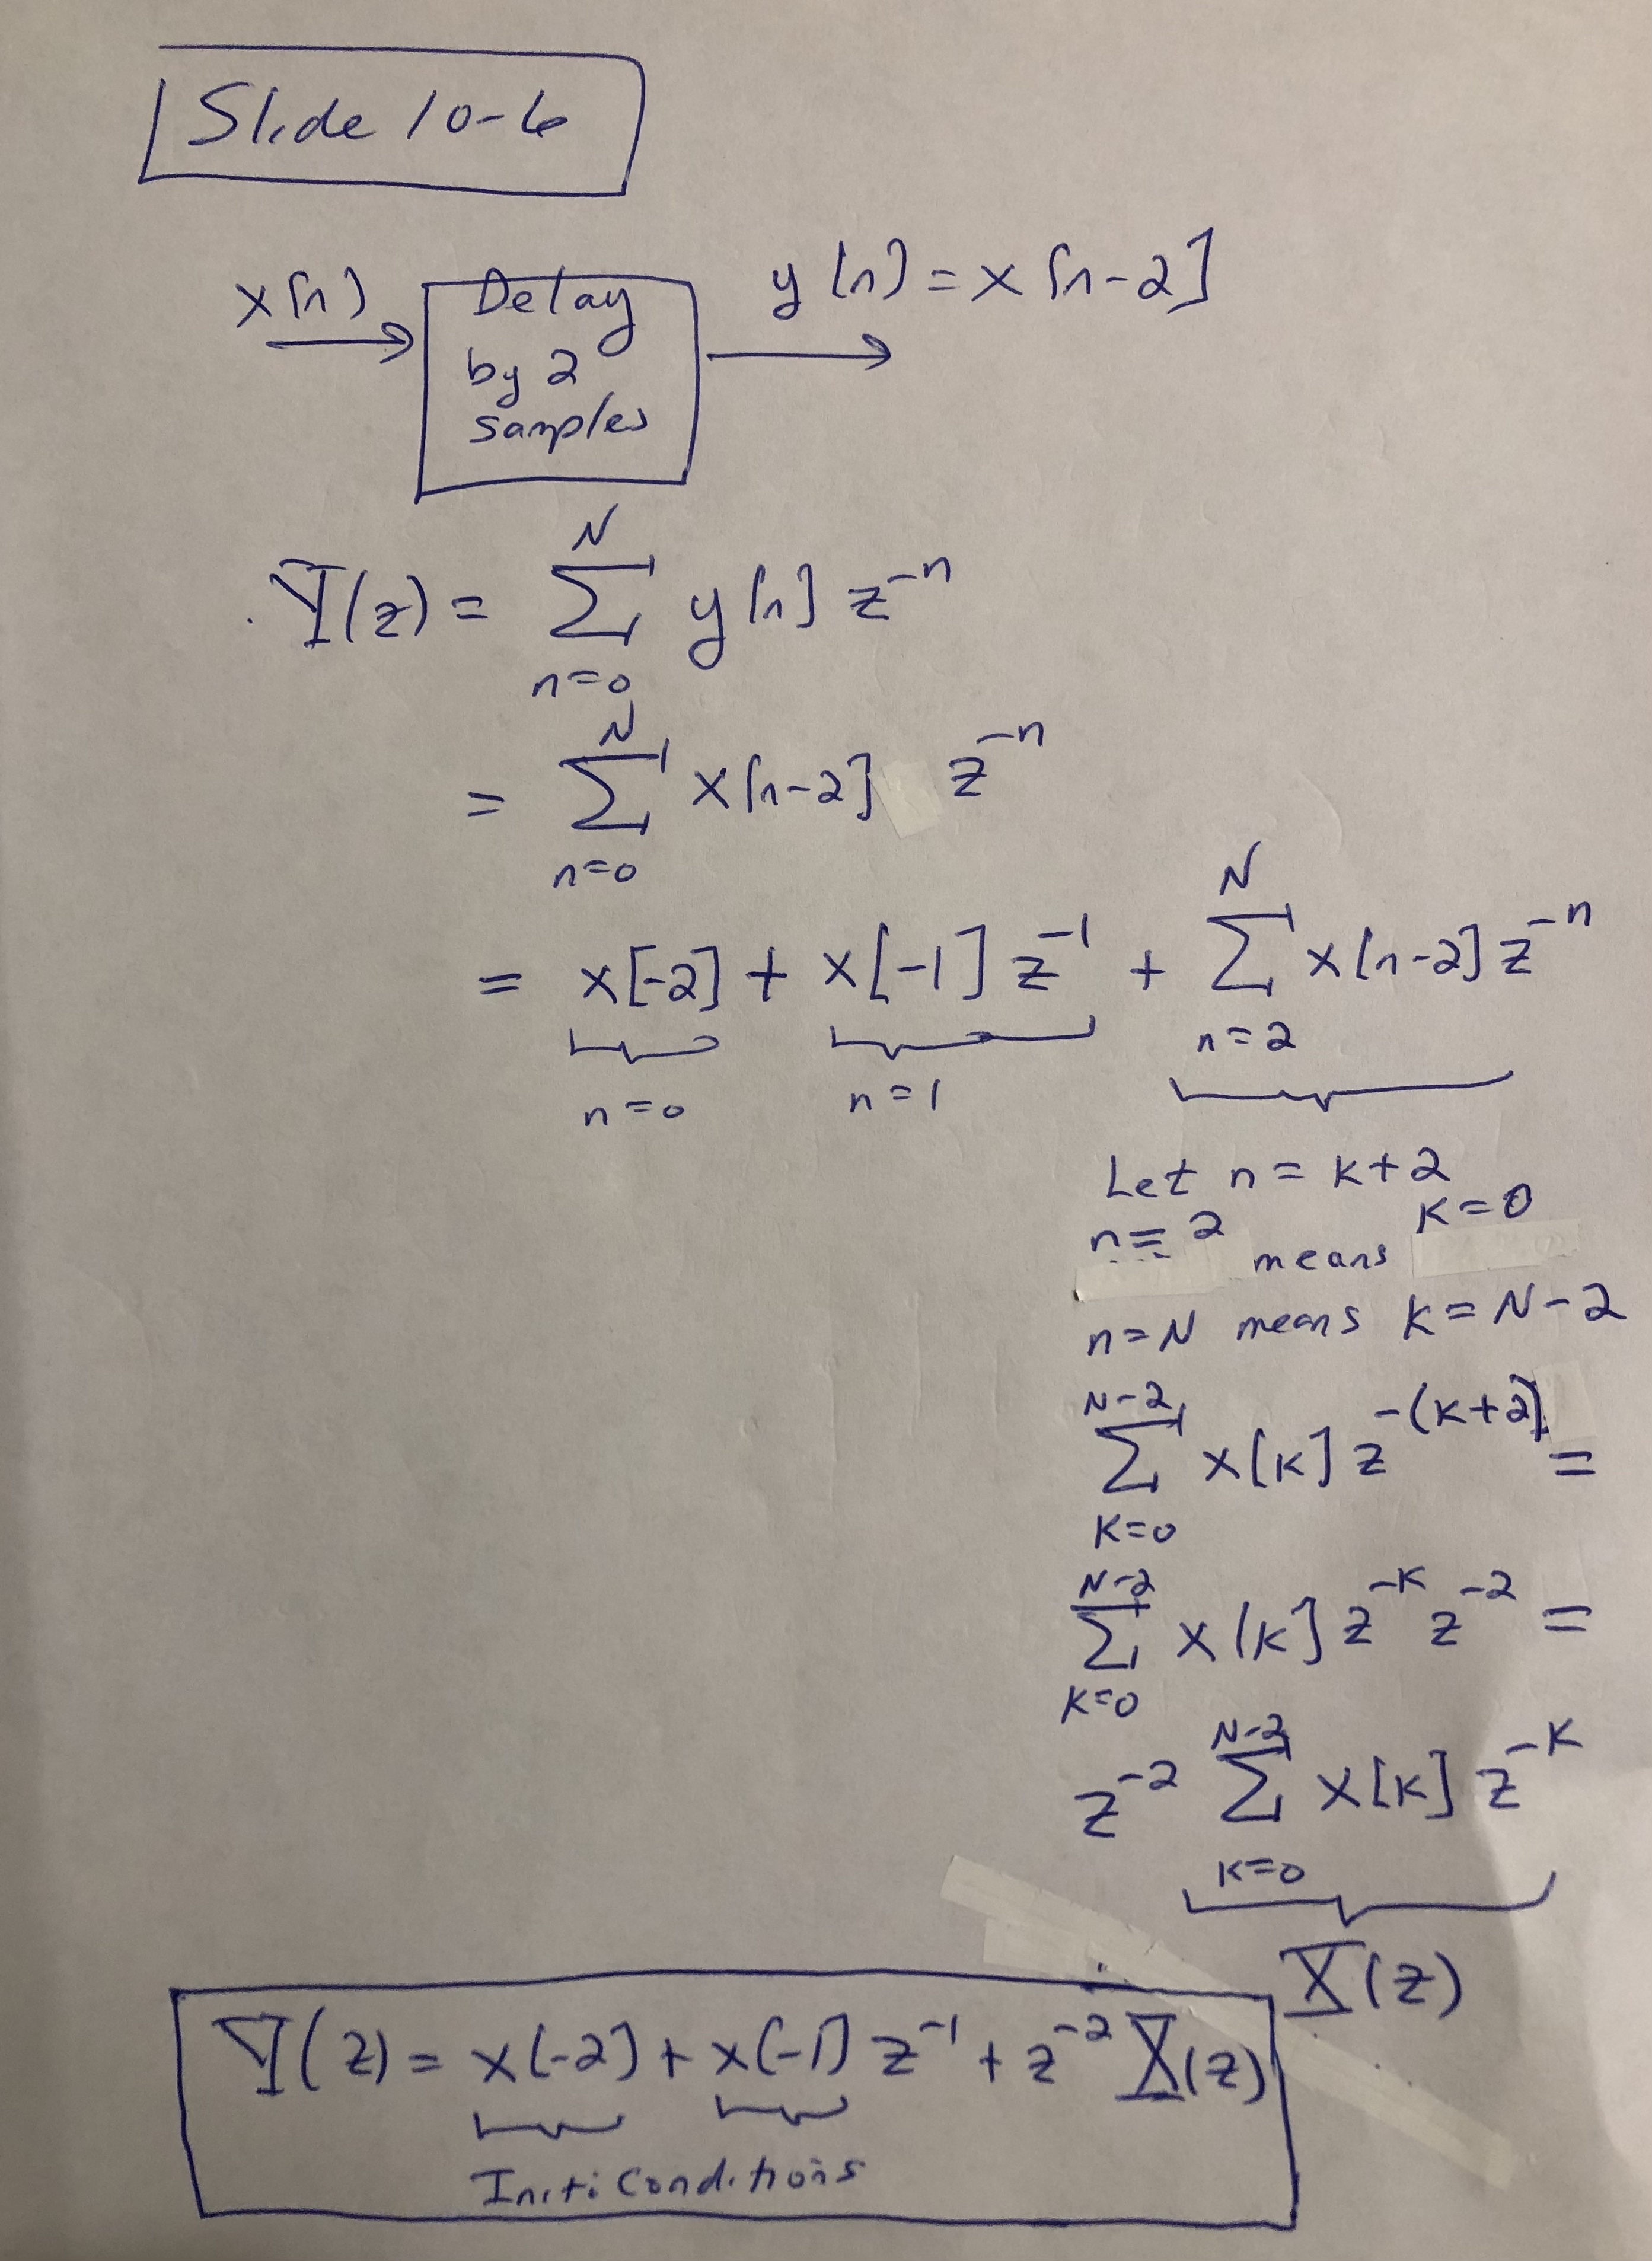 Slide 10-6
x[n]
Delay
by 2
samples
y[n] = x[n-2]
Y(z) = Σ_{n=0}^{N} y[n] z^{-n}
= Σ_{n=0}^{N} x[n-2] z^{-n}
= x[-2] + x[-1] z^{-1} + Σ_{n=2}^{N} x[n-2] z^{-n}
n=0 n=1
Let n = k+2
n = 2 means k=0
n=N means k = N-2
Σ_{k=0}^{N-2} x[k] z^{-(k+2)} =
Σ_{k=0}^{N-2} x[k] z^{-k} z^{-2} =
z^{-2} Σ_{k=0}^{N-2} x[k] z^{-k}
X(z)
Y(z) = x[-2] + x[-1] z^{-1} + z^{-2} X(z)
Initi Conditions